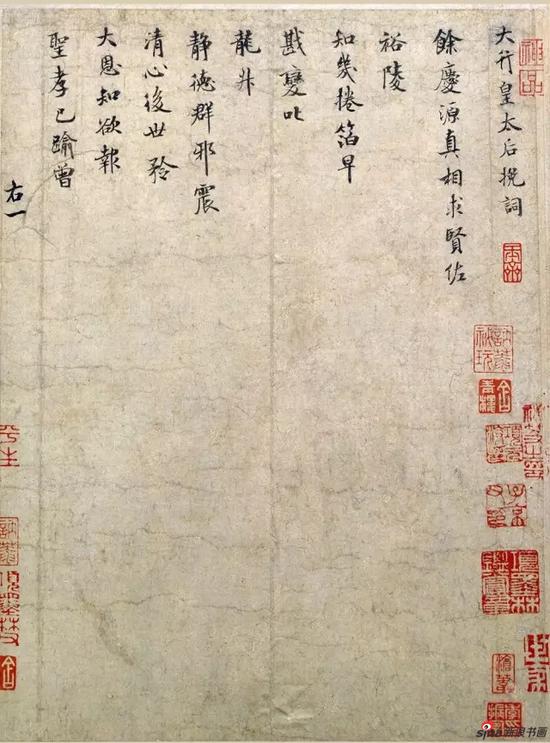 大行皇太后挽詞
餘慶源真相求賢佐
裕陵
知幾捲箔早
戡變叱
龍升
静德群邪震
清心後世矜
大恩知欲報
聖孝已踰曾
右一
新浪书画